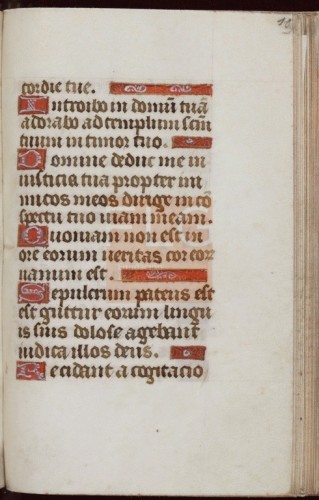 19
cordie tue.
Introibo in domū tuā
adorabo ad templum scm̄
tuum in timor tuo.
Domine deduc me in
iusticia tua propter ini
micos meos dirige in cō
spectu tuo uiam meam.
Quoniam non est in
ore eorum ueritas cor eorr
uanum est.
Sepulcrum patens est
est guttur eorum lingu
is suis dolose agebant
iudica illos deus.
Decidant a cogitacio